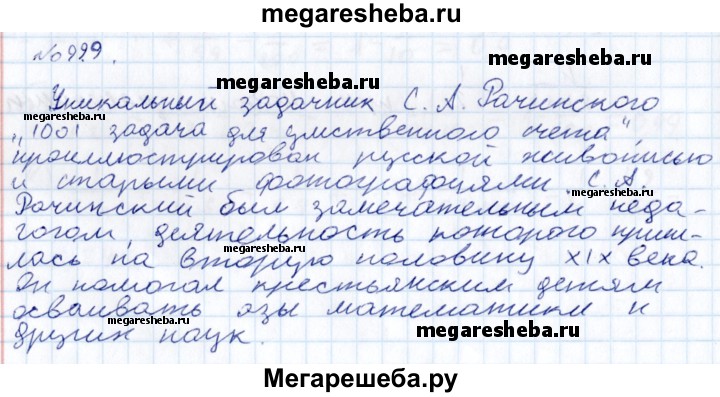 megaresheba.ru
№ 999.
megaresheba.ru
Уникальный задачник С. А. Рачинского
„1001 задача для умственного счета",
проиллюстрирован русской живописью
и старыми фотографиями. С. А.
megaresheba.ru
Рачинский был замечательным педа-
гогом, деятельность которого приш-
лась на вторую половину XIX века.
megaresheba.ru
Он помогал крестьянским детям
осваивать азы математики и
megaresheba.ru
megaresheba.ru
других наук.
Мегарешеба.ру